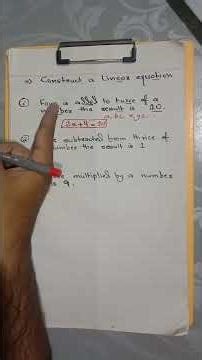 Construct a linear equation
① Four is added to twice of a
number the result is 10.
a, b, c x, y, z
2x+4=10
subtracted from thrice of
number the result is 1
multiplied by a number
is 9.